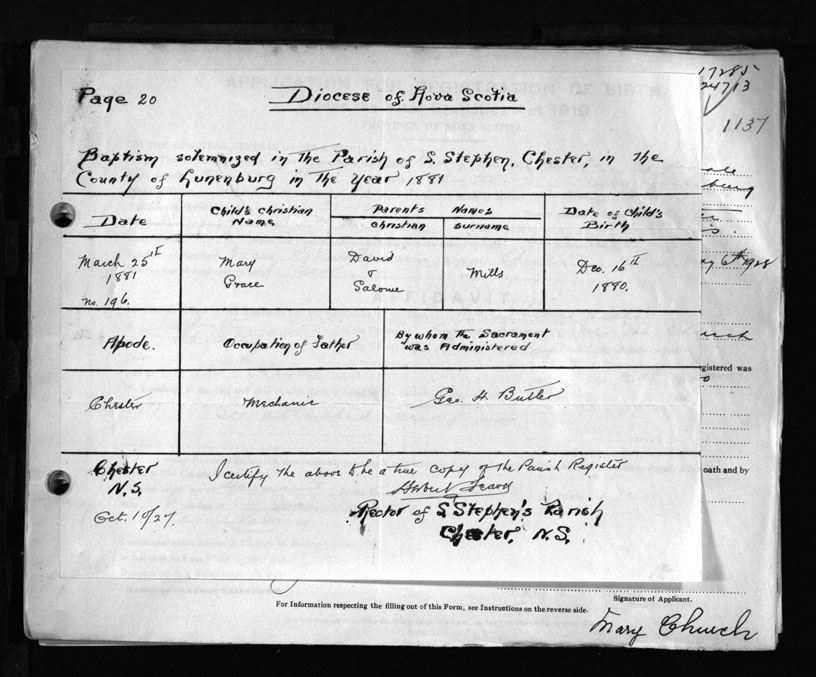 17285
24713
Page 20
Diocese of Nova Scotia
1137
Baptism solemnized in the Parish of S. Stephen, Chester, in the
County of Lunenburg in The Year 1881
Date
Child's Christian
Name
Parents Names
Christian
Surname
Date of Child's
Birth
March 25th
1881
no. 196.
Mary
Grace
David
&
Salome
Mills
Dec. 16th
1880.
6th 1928
Abode.
Occupation of Father
By whom the Sacrament
was Administered
egistered was
Chester
Mechanic
Geo. H. Butler
Chester
N.S.
Oct. 10/27.
I certify the above to be a true copy of the Parish Register
oath and by
Rector of S. Stephen's Parish
Chester, N.S.
Signature of Applicant.
For Information respecting the filling out of this Form, see Instructions on the reverse side.
Mary Church